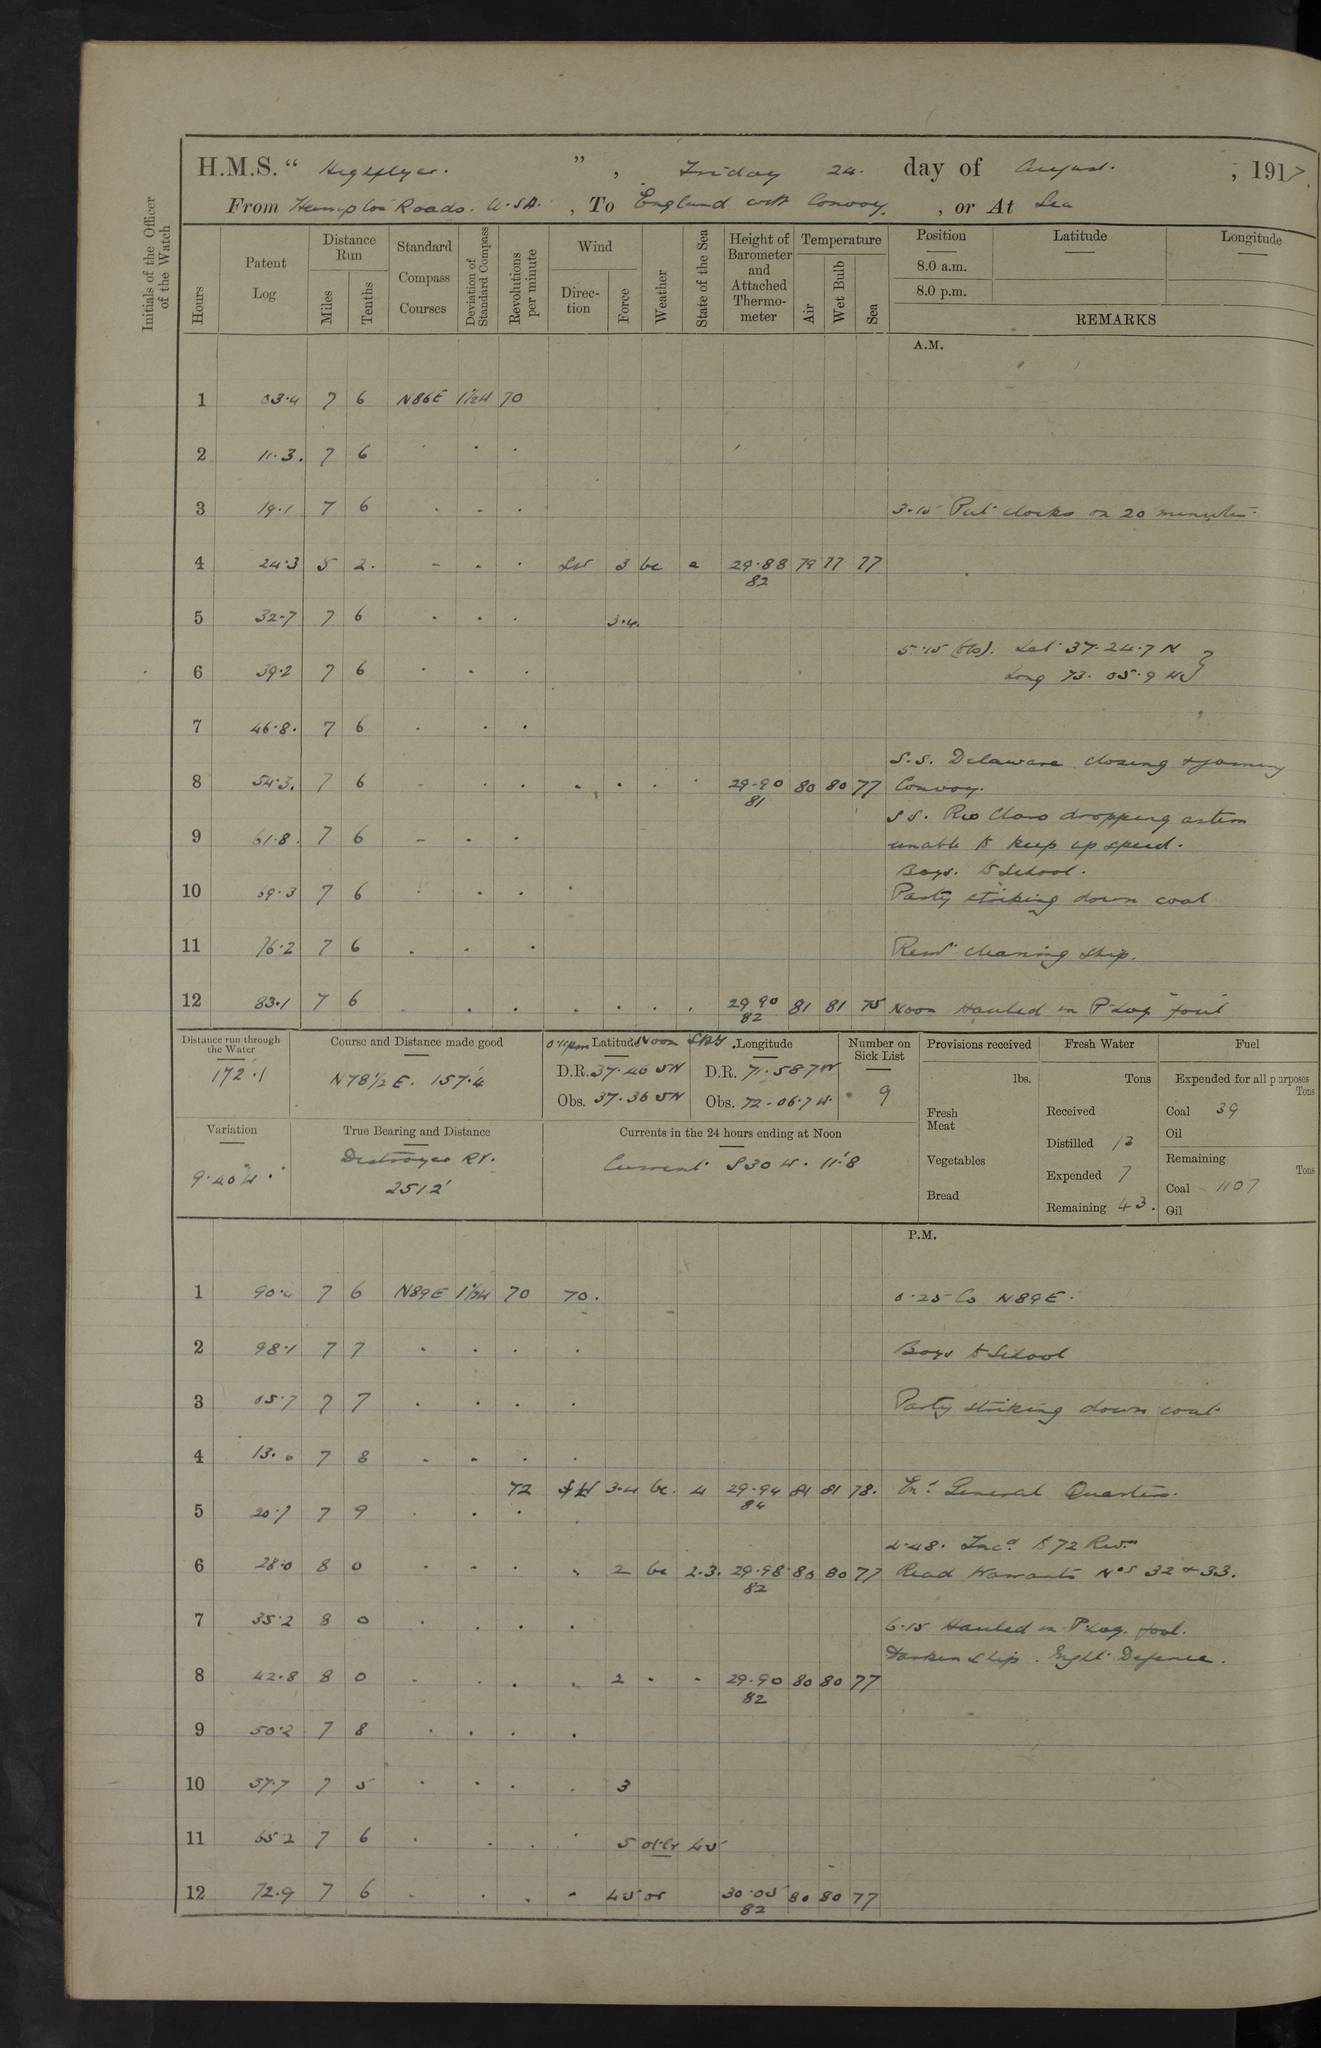 H.M.S. " Highflyer. " , Friday 24. day of August. , 1917.
From Hampton Roads. U.SA. , To England with Convoy. , or At Sea
Initials of the Officer of the Watch
Hours Patent Log Distance Run Miles Tenths Standard Compass Courses Deviation of Standard Compass Revolutions per minute Wind Direc-tion Force Weather State of the Sea Height of Barometer and Attached Thermo-meter Temperature Air Wet Bulb Sea Position Latitude Longitude
8.0 a.m.
8.0 p.m.
REMARKS
A.M.
1 03.4 7 6 N86E 1½W 70
2 11.3. 7 6
3 19.1 7 6 3.15 Put clocks on 20 minutes.
4 24.3 5 2. SW 3 bc 29.88 79 77 77
82
5 32.7 7 6 3.4.
5.15 Lat 37.24.7 N
6 39.2 7 6 Long 73. 05.9 W
7 46.8. 7 6
S.S. Delaware closing & joining
8 54.3. 7 6 29.90 80 80 77 Convoy.
81
S S. Rio Claro dropping astern
9 61.8. 7 6 unable to keep up speed.
Boys. to School.
10 69.3 7 6 Party striking down coal
11 76.2 7 6 Remr cleaning ship.
12 83.1 7 6 29 90 81 81 75 Noon Hauled in P. Log "foul
82
Distance run through the Water
172.1
Course and Distance made good
N78½E. 157.4
Latitude Noon Longitude
D.R. 37.46 5N D.R. 71.58 7W
Obs. 37.36 5N Obs. 72-06.7 W.
Number on Sick List
9
Provisions received
lbs.
Fresh Meat
Vegetables
Bread
Fresh Water
Tons
Received
Distilled 12
Expended 7
Remaining 43.
Fuel
Expended for all purposes
Tons
Coal 39
Oil
Remaining
Tons
Coal 1107
Oil
Variation
9.40 W.
True Bearing and Distance
Destroyer RV.
2512'
Currents in the 24 hours ending at Noon
Current S30 W. 11.8
P.M.
1 90.4 7 6 N89E 1½W 70 70. 0.25 Co N89E.
2 98.1 7 7 Boys to School
3 05.7 7 7 Party striking down coal
4 13.0 7 8
72 SW 3.4 bc. 4 29.94 81 81 78. Exd General Quarters.
84
5 20.7 7 9
4.48. Incd to 72 Revs
6 28.0 8 0 2 bc 2.3. 29.98 80 80 77 Read Warrants Nos 32 & 33.
82
7 35.2 8 0 6.15 Hauled in P. Log. foul.
Darken ship. Night Defence.
8 42.8 8 0 2 29.90 80 80 77
82
9 50.2 7 8
10 57.7 7 5 3
11 65.2 7 6 5 45
12 72.9 7 6 45 or 30.05 80 80 77
82